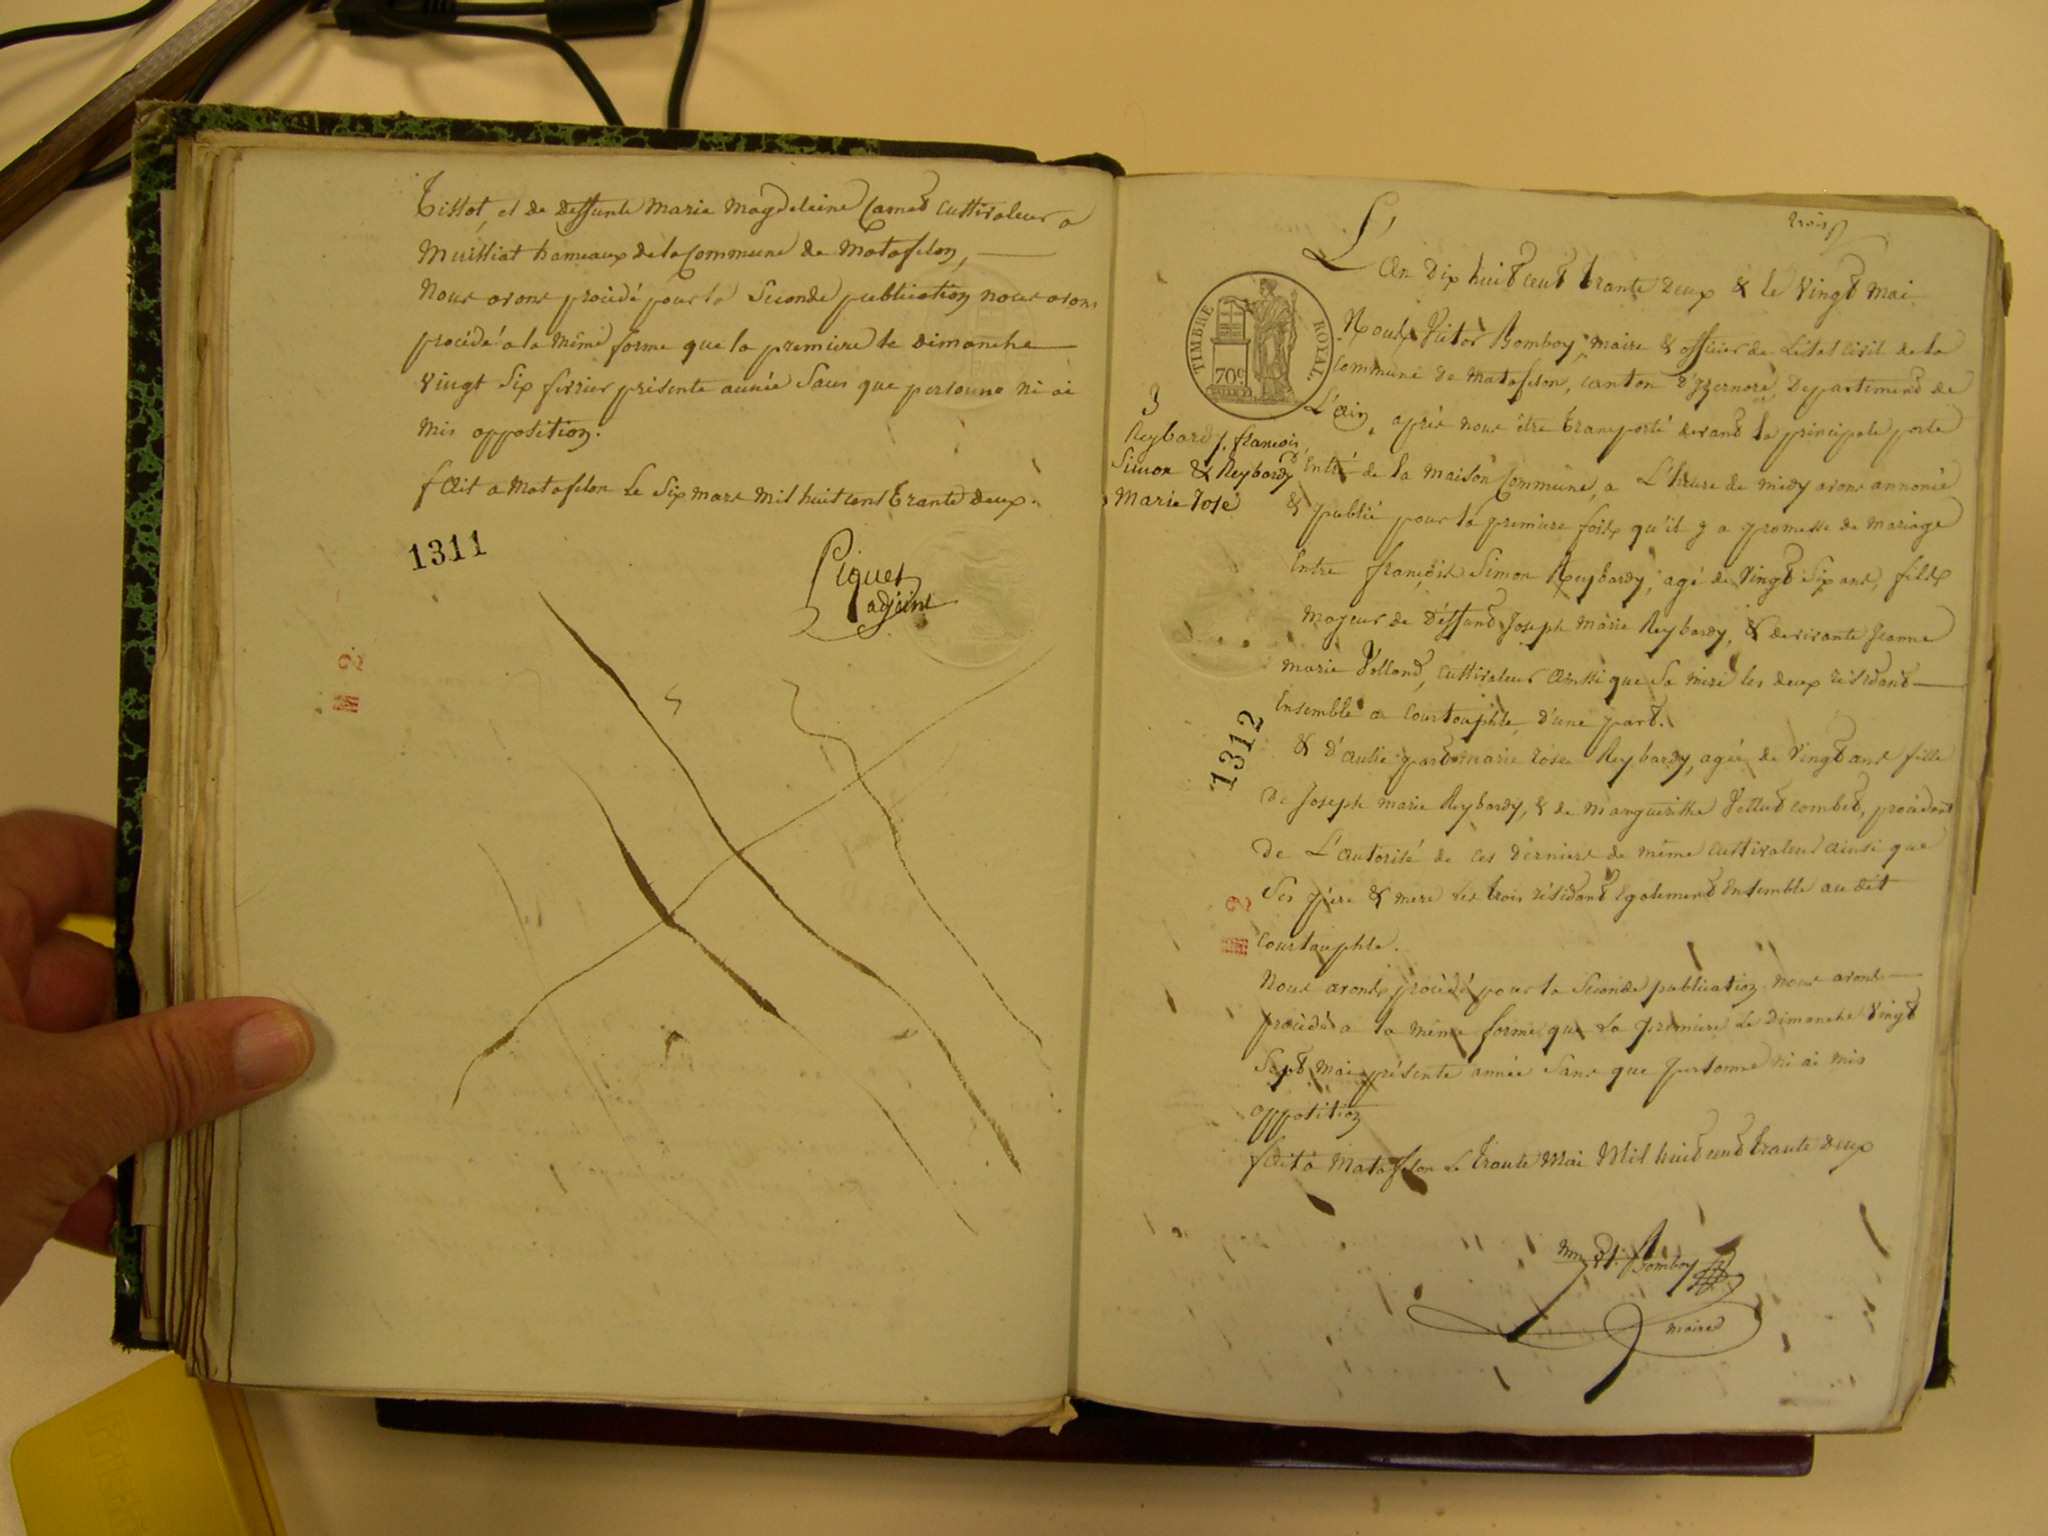 Tissot, et de deffunte marie magdeleine Camet cultivateur a
Muissiat hameaux de la Commune de Matafelon,
Nous avons procédé pour la Seconde publication nous avons
procédé a la même forme que la premiere le dimanche
vingt Six fevrier présente année Sans que personne ni ai
mis opposition.
fait a Matafelon Le Six mars mil huit cent trante deux.
1311
Piquet
adjoint
trois
L'an dix huit cent trante deux & le vingt mai
TIMBRE ROYAL.
70c
Nous Victor Bomboy, maire & officier de L'état civil de la
Commune de Matafelon, canton d'izernore, Departement de
L'ain, après nous être transporté devant la principale porte
3
Reybardy, françois
Simon & Reybardy
Marie Rose
d'entré de la maison Commune, a L'heure de midy avons annoncé
& publié pour la premiere fois, qu'il y a promesse de mariage
Entre françois Simon Reybardy, agé de vingt Six ans, fils
majeur de déffunt Joseph Marie Reybardy, & de vivante Jeanne
marie Volland, cultivateur ainssi que Sa mere les deux résidant
Ensemble a Courtouphle, d'une part.
1312
& d'autre part marie rose Reybardy, agée de vingt ans fille
de Joseph marie Reybardy, & de Margueritte combet, procédant
de L'autorité de ces derniers de même cultivateur ainsi que
Ses père & mere les trois résidant Egalement Ensemble au dit
Courtouphle.
Nous avons procédé pour la Seconde publication, nous avons
procédé a la même forme que La premiere Le dimanche vingt
Sept mai présente année Sans que personne ni ai mis
opposition
fait à Matafelon Le trante Mai Mil huit cent trante deux
Bomboy
maire